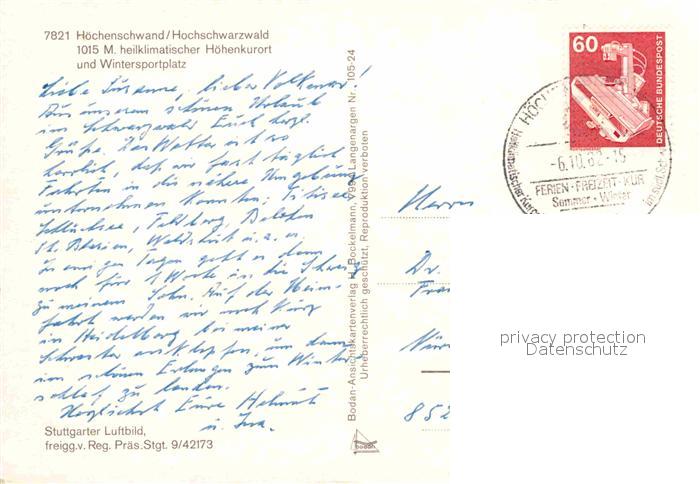 7821 Höchenschwand/Hochschwarzwald
1015 M. heilklimatischer Höhenkurort
und Wintersportplatz
Liebe Susanne, lieber Volkmar!
Aus unserem schönen Urlaub
im Schwarzwald Euch herzl.
Grüße. Das Wetter ist so
herrlich, daß wir fast täglich
Fahrten in die nähere Umgebung
unternehmen konnten; Titisee,
Schluchsee, Feldberg, Belchen
St. Blasien, Waldshut u.s.w.
In einigen Tagen geht es dann
noch für 1 Woche in die Schweiz
zu meinem Sohn. Auf der Heim-
fahrt werden wir noch kurz
in Heidelberg bei meiner
Schwester anklopfen, um dann
im schönen Erlangen zum Winter
schlaf zu landen.
Herzlichst Eure Helmut
u.
Stuttgarter Luftbild,
freigg.v. Reg. Präs.Stgt. 9/42173
Bodan-Ansichtskartenverlag H. Bockelmann, 7994 Langenargen Nr. 105-24
Urheberrechtlich geschützt, Reproduktion verboten
bodan
60
DEUTSCHE BUNDESPOST
-6.10.82-15
FERIEN·FREIZEIT·KUR
Sommer · Winter
Herrn
Dr.
Fra
Nür
852
privacy protection
Datenschutz